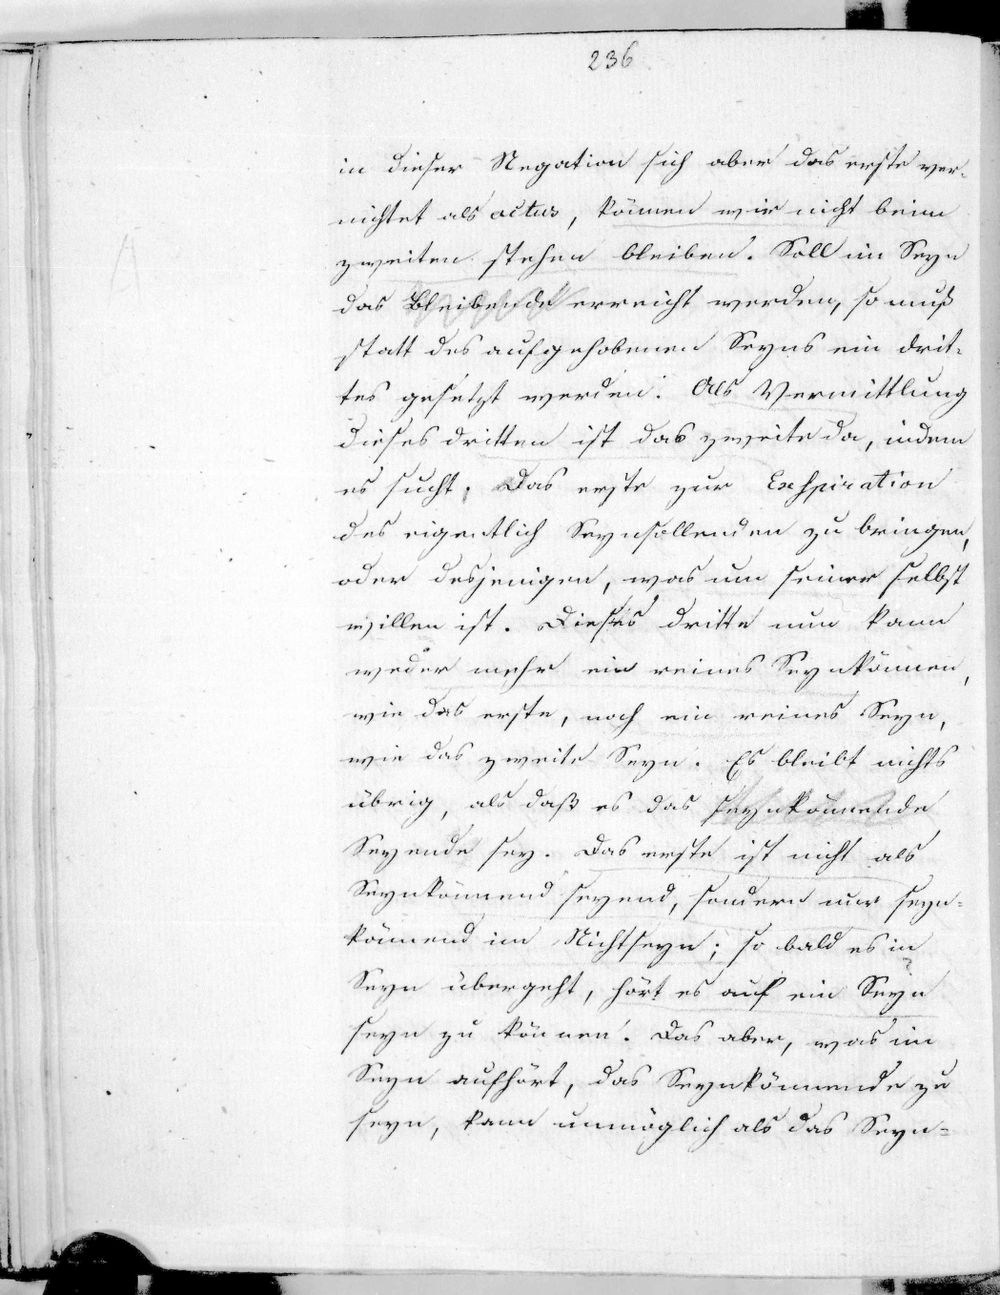 236
in dieser Negation sich aber das erste ver-
nichtet als actus, können wir nicht beim
zweiten stehen bleiben. Soll im Seyn
das Bleibende erreicht werden, so muß
statt des aufgehobenen Seyns ein drit-
tes gesetzt werden. Als Vermittlung
dieses dritten ist das zweite da, indem
es sucht, das erste zur Exspiration
des eigentlich Seynsollenden zu bringen,
oder desjenigen, was um seiner selbst
willen ist. Dieses dritte nun kann
weder mehr ein reines Seynkönnen,
wie das erste, noch ein reines Seyn,
wie das zweite seyn. Es bleibt nichts
übrig, als daß es das seynkönnende
Seyende sey. Das erste ist nicht als
Seynkönnend seyend, sondern nur seyn-
könnend im Nichtseyn; so bald es in
Seyn übergeht, hört es auf ein Seyn
seyn zu können. Das aber, was im
Seyn aufhört, das Seynkönnende zu
seyn, kann unmöglich als das Seyn-